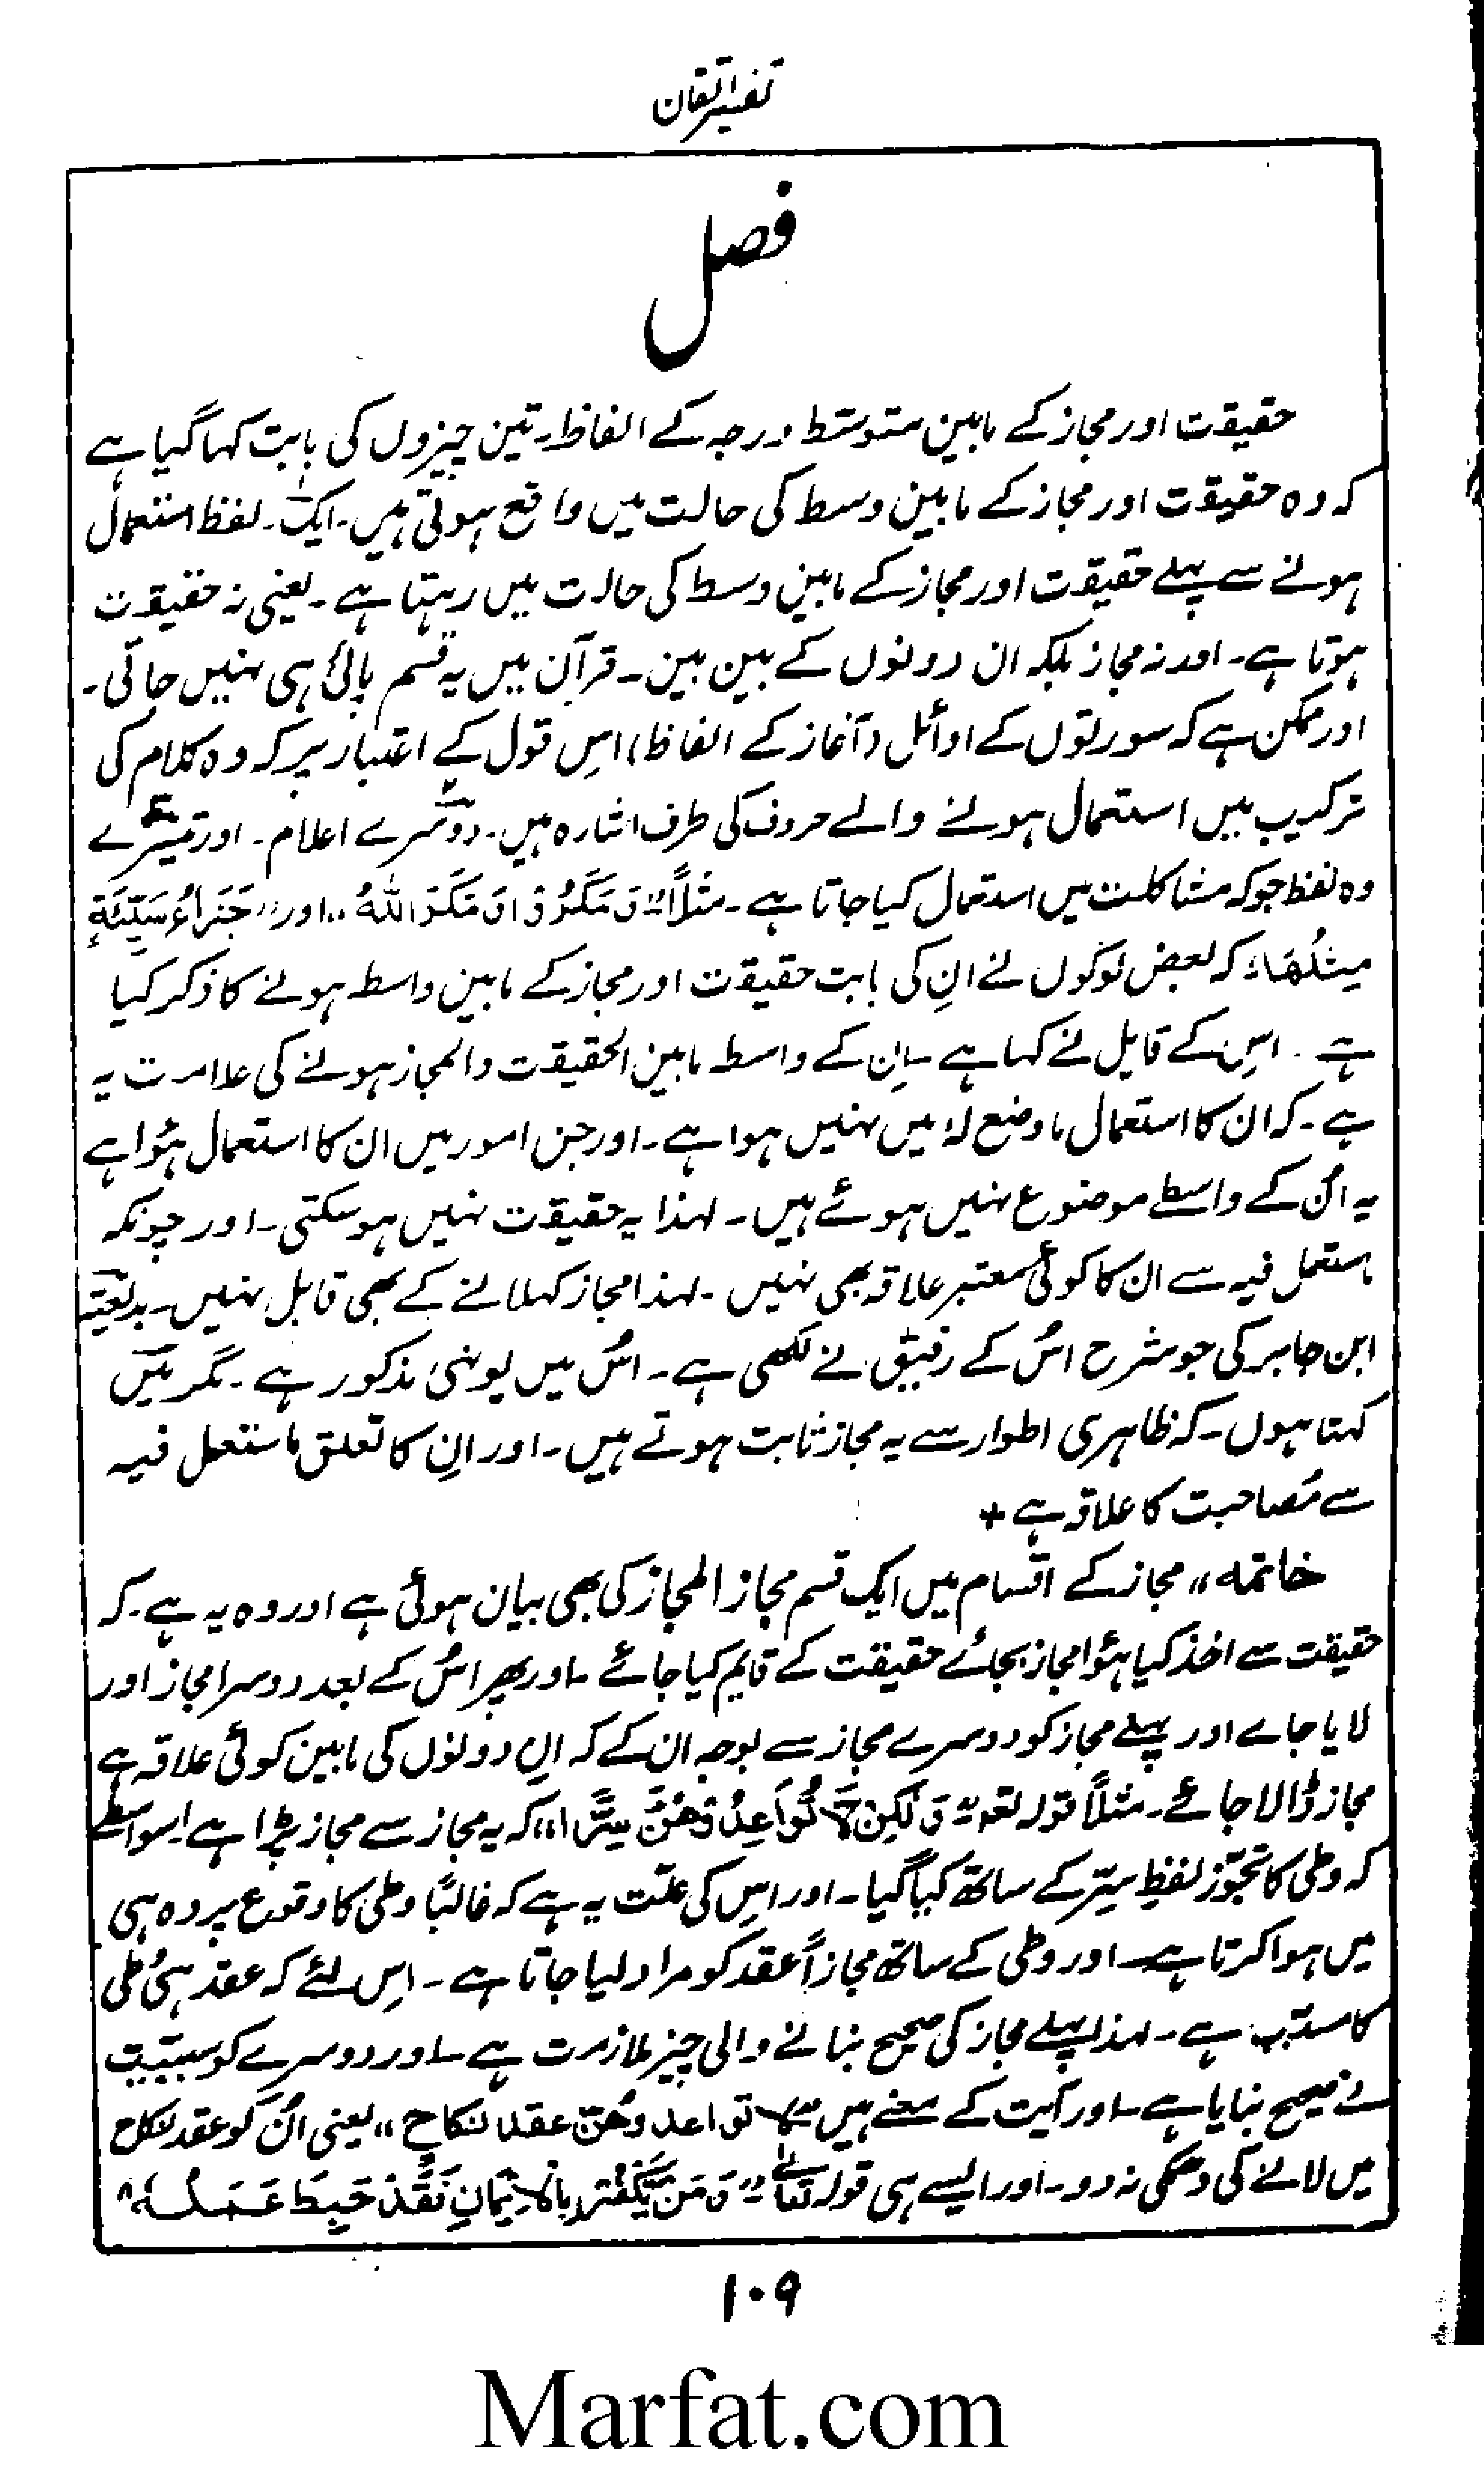 تفسیر اتقان
فصل
حقیقت اور مجاز کے مابین متوسّط درجہ کے الفاظ۔ تین چیزوں کی بابت کہا گیا ہے
کہ وہ حقیقت اور مجاز کے مابین وسط کی حالت میں واقع ہوتی ہیں۔ ایک۔ لفظ استعمال
ہونے سے پہلے حقیقت اور مجاز کے مابین وسط کی حالت میں رہتا ہے۔ یعنی نہ حقیقت
ہوتا ہے۔ اور نہ مجاز بلکہ ان دونوں کے بین بین۔ قرآن میں یہ قسم پائی ہی نہیں جاتی۔
اور ممکن ہے کہ سورتوں کے اوائل (آغاز کے الفاظ) اس قول کے اعتبار پر کہ وہ کلام کی
ترکیب میں استعمال ہونے والے حروف کی طرف اشارہ ہیں۔ دوسرے اعلام۔ اور تیسرے
وہ لفظ جو کہ مشاکلت میں استعمال کیا جاتا ہے۔ مثلاً "وَمَکَرُوْا وَمَکَرَ اللّٰہُ" اور "جَزَاءُ سَیِّئَۃٍ
مِثْلُھَا" کہ بعض لوگوں نے اِن کی بابت حقیقت اور مجاز کے مابین واسطہ ہونے کا ذکر کیا
ہے۔ اِس کے قایل نے کہا ہے۔ اِن کے واسطہ مابین الحقیقت والمجاز ہونے کی علامت یہ
ہے۔ کہ ان کا استعمال ما وضع لہٗ میں نہیں ہوا ہے۔ اور جن امور میں ان کا استعمال ہؤا ہے
یہ اُن کے واسطے موضوع نہیں ہوئے ہیں۔ لہذا یہ حقیقت نہیں ہو سکتی۔ اور چونکہ
مستعمل فیہ سے ان کا کوئی معتبر علاقہ بھی نہیں۔ لہذا مجاز کہلانے کے بھی قابل نہیں۔ بدیعیۃ
ابن جابر کی جو شرح اُس کے رفیق نے لکھی ہے۔ اُس میں یونہی مذکور ہے۔ مگر میں
کہتا ہوں۔ کہ ظاہری اطوار سے یہ مجاز ثابت ہوتے ہیں۔ اور اِن کا تعلق مستعمل فیہ
سے مُصاحبت کا علاقہ ہے +
خاتمہ" مجاز کے اقسام میں ایک قسم مجاز المجاز کی بھی بیان ہوئی ہے اور وہ یہ ہے۔ کہ
حقیقت سے اخذ کیا ہؤا مجاز بجائے حقیقت کے قایم کیا جائے۔ اور پھر اُس کے بعد دوسرا مجاز اور
لایا جاے اور پہلے مجاز کو دوسرے مجاز سے بوجہ ان کے کہ اِن دونوں کی مابین کوئی علاقہ ہے
مجاز ڈالا جائے۔ مثلاً قولہ تعہ "وَلٰکِنْ لَّا تُوَاعِدُوْھُنَّ سِرًّا" کہ یہ مجاز سے مجاز پڑا ہے اسواسطے
کہ وطی کا تجوّز لفظِ سِرّ کے ساتھ کیا گیا۔ اور اِس کی علّت یہ ہے کہ غالبًا وطی کا وقوع پردہ ہی
میں ہوا کرتا ہے۔ اور وطی کے ساتھ مجازاً عقد کو مراد لیا جاتا ہے۔ اِس لئے کہ عقد ہی وطی
کا مسبّب ہے۔ لہذا پہلے مجاز کی صحیح بنانے والی چیز ملازمت ہے۔ اور دوسرے کو سببیّت
نے صحیح بنایا ہے۔ اور آیت کے معنے ہیں "لا تواعدوھُنّ عقد نکاح" یعنی اُن کو عقد نکاح
میں لانے کی دھمکی نہ دو۔ اور ایسے ہی قولہ تعالٰے "وَمَنْ یَّکْفُرْ بِالْاِیْمَانِ فَقَدْ حَبِطَ عَمَلُہٗ"
۱۰۹
Marfat.com